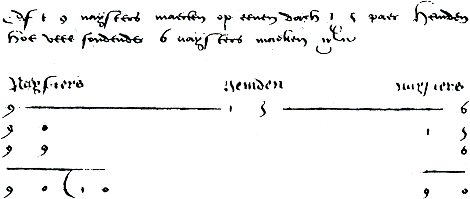 Oft 9 naysters maeken op eenen dach 1 5 paer Hemden
hoe vele sondender 6 naysters maeken
Naysters Hemden naysters
9 1 5 6
9 0 1 5
9 9 6
9 0 ( 1 0 9 0